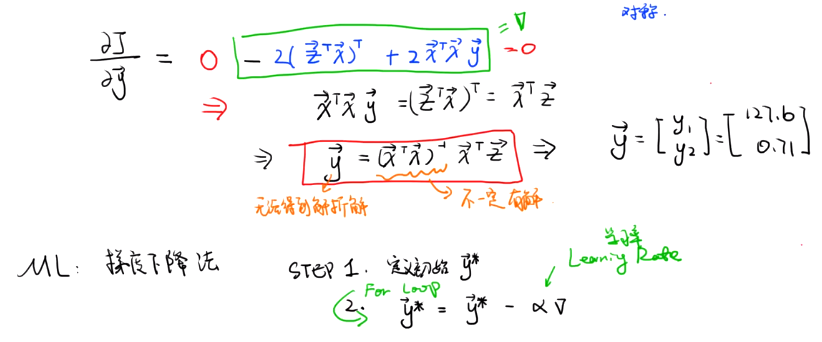 对称.
∂J/∂y⃗ = 0 - 2(z⃗ᵀx⃗)ᵀ + 2x⃗ᵀx⃗ y⃗ = ∇ = 0
⇒ x⃗ᵀx⃗ y⃗ = (z⃗ᵀx⃗)ᵀ = x⃗ᵀz⃗
⇒ y⃗ = (x⃗ᵀx⃗)⁻¹ x⃗ᵀz⃗ ⇒ y⃗ = [y₁ y₂] = [127.6 0.71]
无法得到解析解 不一定有解
学习率
ML: 梯度下降法 STEP 1. 定义初始 y⃗* Learning Rate
For Loop
2. y⃗* = y⃗* - α∇